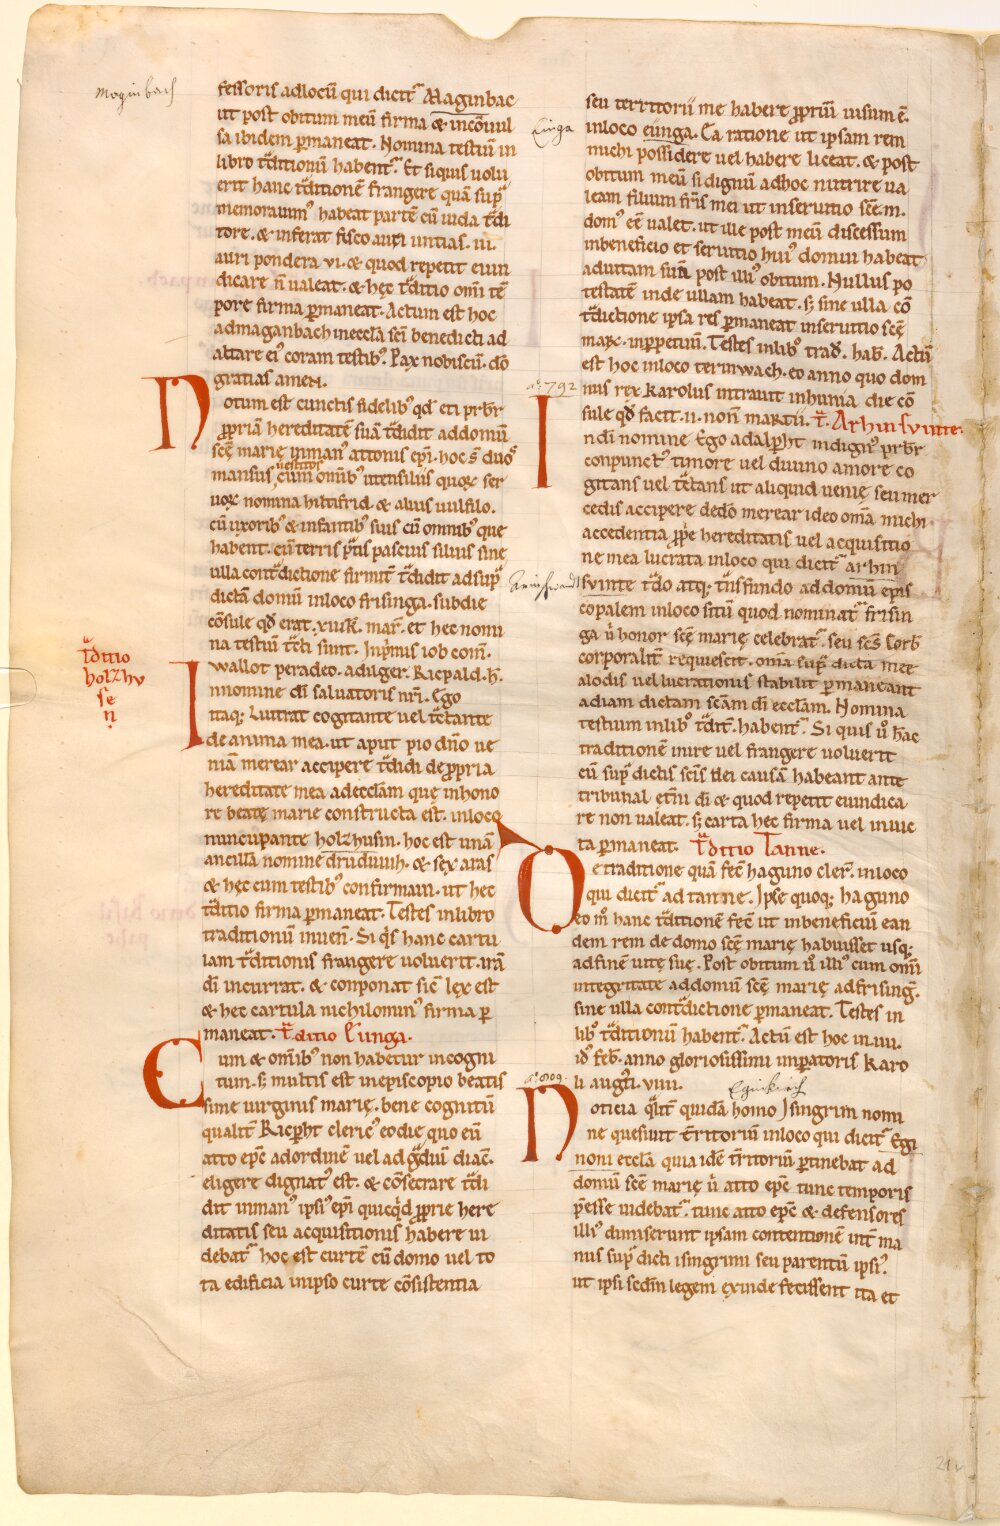 Maginbach
fessoris ad locū qui dicit᷑ Maginbac
ut post obitum meū firma & incōuul
sa ibidem p̄maneat. Nomina testiū in
libro t᷑ditionū habent᷑. Et siquis uolu
erit hanc t᷑ditionē frangere quā sup᷑
memorauimꝰ habeat partē cū iuda t᷑di
tore. & inferat fisco auri untias. iii.
auri pondera vi. & quod repetit euin
dicare n̄ ualeat. & hęc t᷑ditio om̄i tē
pore firma p̄maneat. Actum est hoc
ad maganbach in eccl̄a sc̄i benedicti ad
altare eiꝰ coram testibꝰ. Pax nobiscū. dō
gratias amen.
Notum est cunctis fidelibꝰ qd̄ eti pr̄br̄
ꝓpriā hereditatē suā t᷑didit ad domū
sc̄ę marię in manꝰ attonis ep̄i. hoc s̄ duoꝰ
mansus uestitos cum om̄ibꝰ utensiliis quoꝝ ser
uoꝝ nomina hiltifrid. & alius uulfilo.
cū uxoribꝰ & infantibꝰ suis cū omnibꝰ que
habent. cū terris p̄tis pascuis siluis sine
ulla cont᷑dictione firmit᷑ t᷑didit ad sup᷑
dictā domū in loco frisinga. sub die
cōsule qd̄ erat. xvi. k̄. mar̄. et hec nomi
na testiū t᷑cti sunt. Inp᷑mis iob com̄.
wallot peradeo. adilger. Ricpald. h̄.
t᷑ditio
holzhu
se
n̄
In nomine dī saluatoris nr̄i. Ego
itaq; Lutrat cogitante uel t᷑ctante
de anima mea. ut aput pio dn̄o ue
niā merear accipere t᷑didi de ꝓpria
hereditate mea ad eccl̄am quę in hono
re beatę marie constructa est. in loco
nuncupante holzhusin. hoc est unā
ancillā nomine drudmuh. & sex aras
& hęc cum testibꝰ confirmaui. ut hec
t᷑ditio firma p̄maneat. Testes in libro
traditionū inuen̄. Si q̄s hanc cartu
lam t᷑ditionis frangere uoluerit. irā
dī incurrat. & conponat sic̄ lex est
& hec cartula nichilominꝰ firma p̄
maneat. t᷑ditio Eunga.
Cum & om̄ibꝰ non habetur incogni
tum. s; multis est in episcopio beatis
sime uirginis marię. bene cognitū
qualit᷑ Ricp̄ht clericꝰ eo die quo eū
atto ep̄c ad ordinē uel ad g᷑dū diac̄.
eligere dignatꝰ est. & cōsecrare t᷑di
dit in manꝰ ipsiꝰ ep̄i quicq̄d ꝓprie here
ditatis seu acquisitionis habere ui
debat᷑ hoc est curtē cū domo uel to
ta edificia in ipso curte cōsistentia
seu territorii me habere ꝓpriū uisum ē.
Eunga
in loco eunga. Ea ratione ut ipsam rem
michi possidere uel habere liceat. & post
obitum meū si dignū ad hoc nutrire ua
leam filium fr̄is mei ut in seruitio sc̄e m.
domꝰ eē ualet. ut ille post meū discessum
in beneficio et seruitio huiꝰ domui habeat
ad uitam suā post illiꝰ obitum. Nullus po
testatē inde ullam habeat. s; sine ulla cō
t᷑dictione ipsa res p̄maneat in seruitio sc̄ę
marę. in ꝑpetuū. Testes in libꝰ trad̄. hab̄. Actū
est hoc in loco terinwach. eo anno quo dom
a° 792
nus rex karolus intrauit in hunia die cō
sule qd̄ facit. ii. non̄ martii. t᷑. Arhinsuinte.
In dī nomine Ego adalp̄ht indignꝰ pr̄br̄
conpunctꝰ timore uel diuino amore co
gitans uel t᷑ctans ut aliquid uenię seu mer
cedis accipere de dō merear ideo om̄a michi
accedentia ꝓpe hereditatis uel acquisitio
ne mea lucrata in loco qui dicit᷑ arhin
suinte t᷑do atq; t᷑nsfundo ad domū epis
copalem in loco sitū quod nominat᷑ frisin
ga ū honor sc̄ę marię celebrat᷑. seu sc̄s Corb̄
corporalit᷑ requiescit. om̄a sup᷑ dicta mee
alodis uel lucrationis stabilit᷑ p̄maneant
ad iam dictam sc̄am dī eccl̄am. Nomina
testium in libꝰ t᷑dit̄. habent᷑. Si quis ū h̄ac
traditionē inire uel frangere voluerit
cū sup᷑ dictis sc̄is dei causā habeant ante
tribunal et̄ni dī & quod repetit euindica
re non valeat. s; carta hec firma uel inuic
ta p̄maneat. t᷑ditio Tanne.
De traditione quā fec̄ haguno cler̄. in loco
qui dicit᷑ ad tanne. Ipse quoq; haguno
eo m̄ hanc t᷑ditionē fec̄ ut in beneficiū ean
dem rem de domo sc̄ę marię habuisset usq;
ad finē uitę suę. Post obitum ū illiꝰ cum om̄i
integritate ad domū sc̄ę marię ad frising̅.
sine ulla cont᷑dictione p̄maneat. Testes in
libꝰ t᷑ditionū habent᷑. Actū est hoc in. iiii.
id̄ feb̄. anno gloriosissimi inp̄atoris karo
li augꝰti. viiii.
a° 809.
Eginkirch
Noticia q̄lit᷑ quidā homo Isingrim nomi
ne quesiuit t̄ritoriū in loco qui dicit᷑ Egi
noni eccl̄a quia idē t̄ritoriū p̄tinebat ad
domū sc̄ę marię ū atto ep̄c tunc temporis
p̄esse uidebat᷑. tunc atto ep̄c & defensores
illiꝰ dimiserunt ipsam contentionē int᷑ ma
nus sup᷑ dicti isingrimi seu parentū ipsiꝰ.
ut ipsi scd̄m legem exinde fecissent ita et